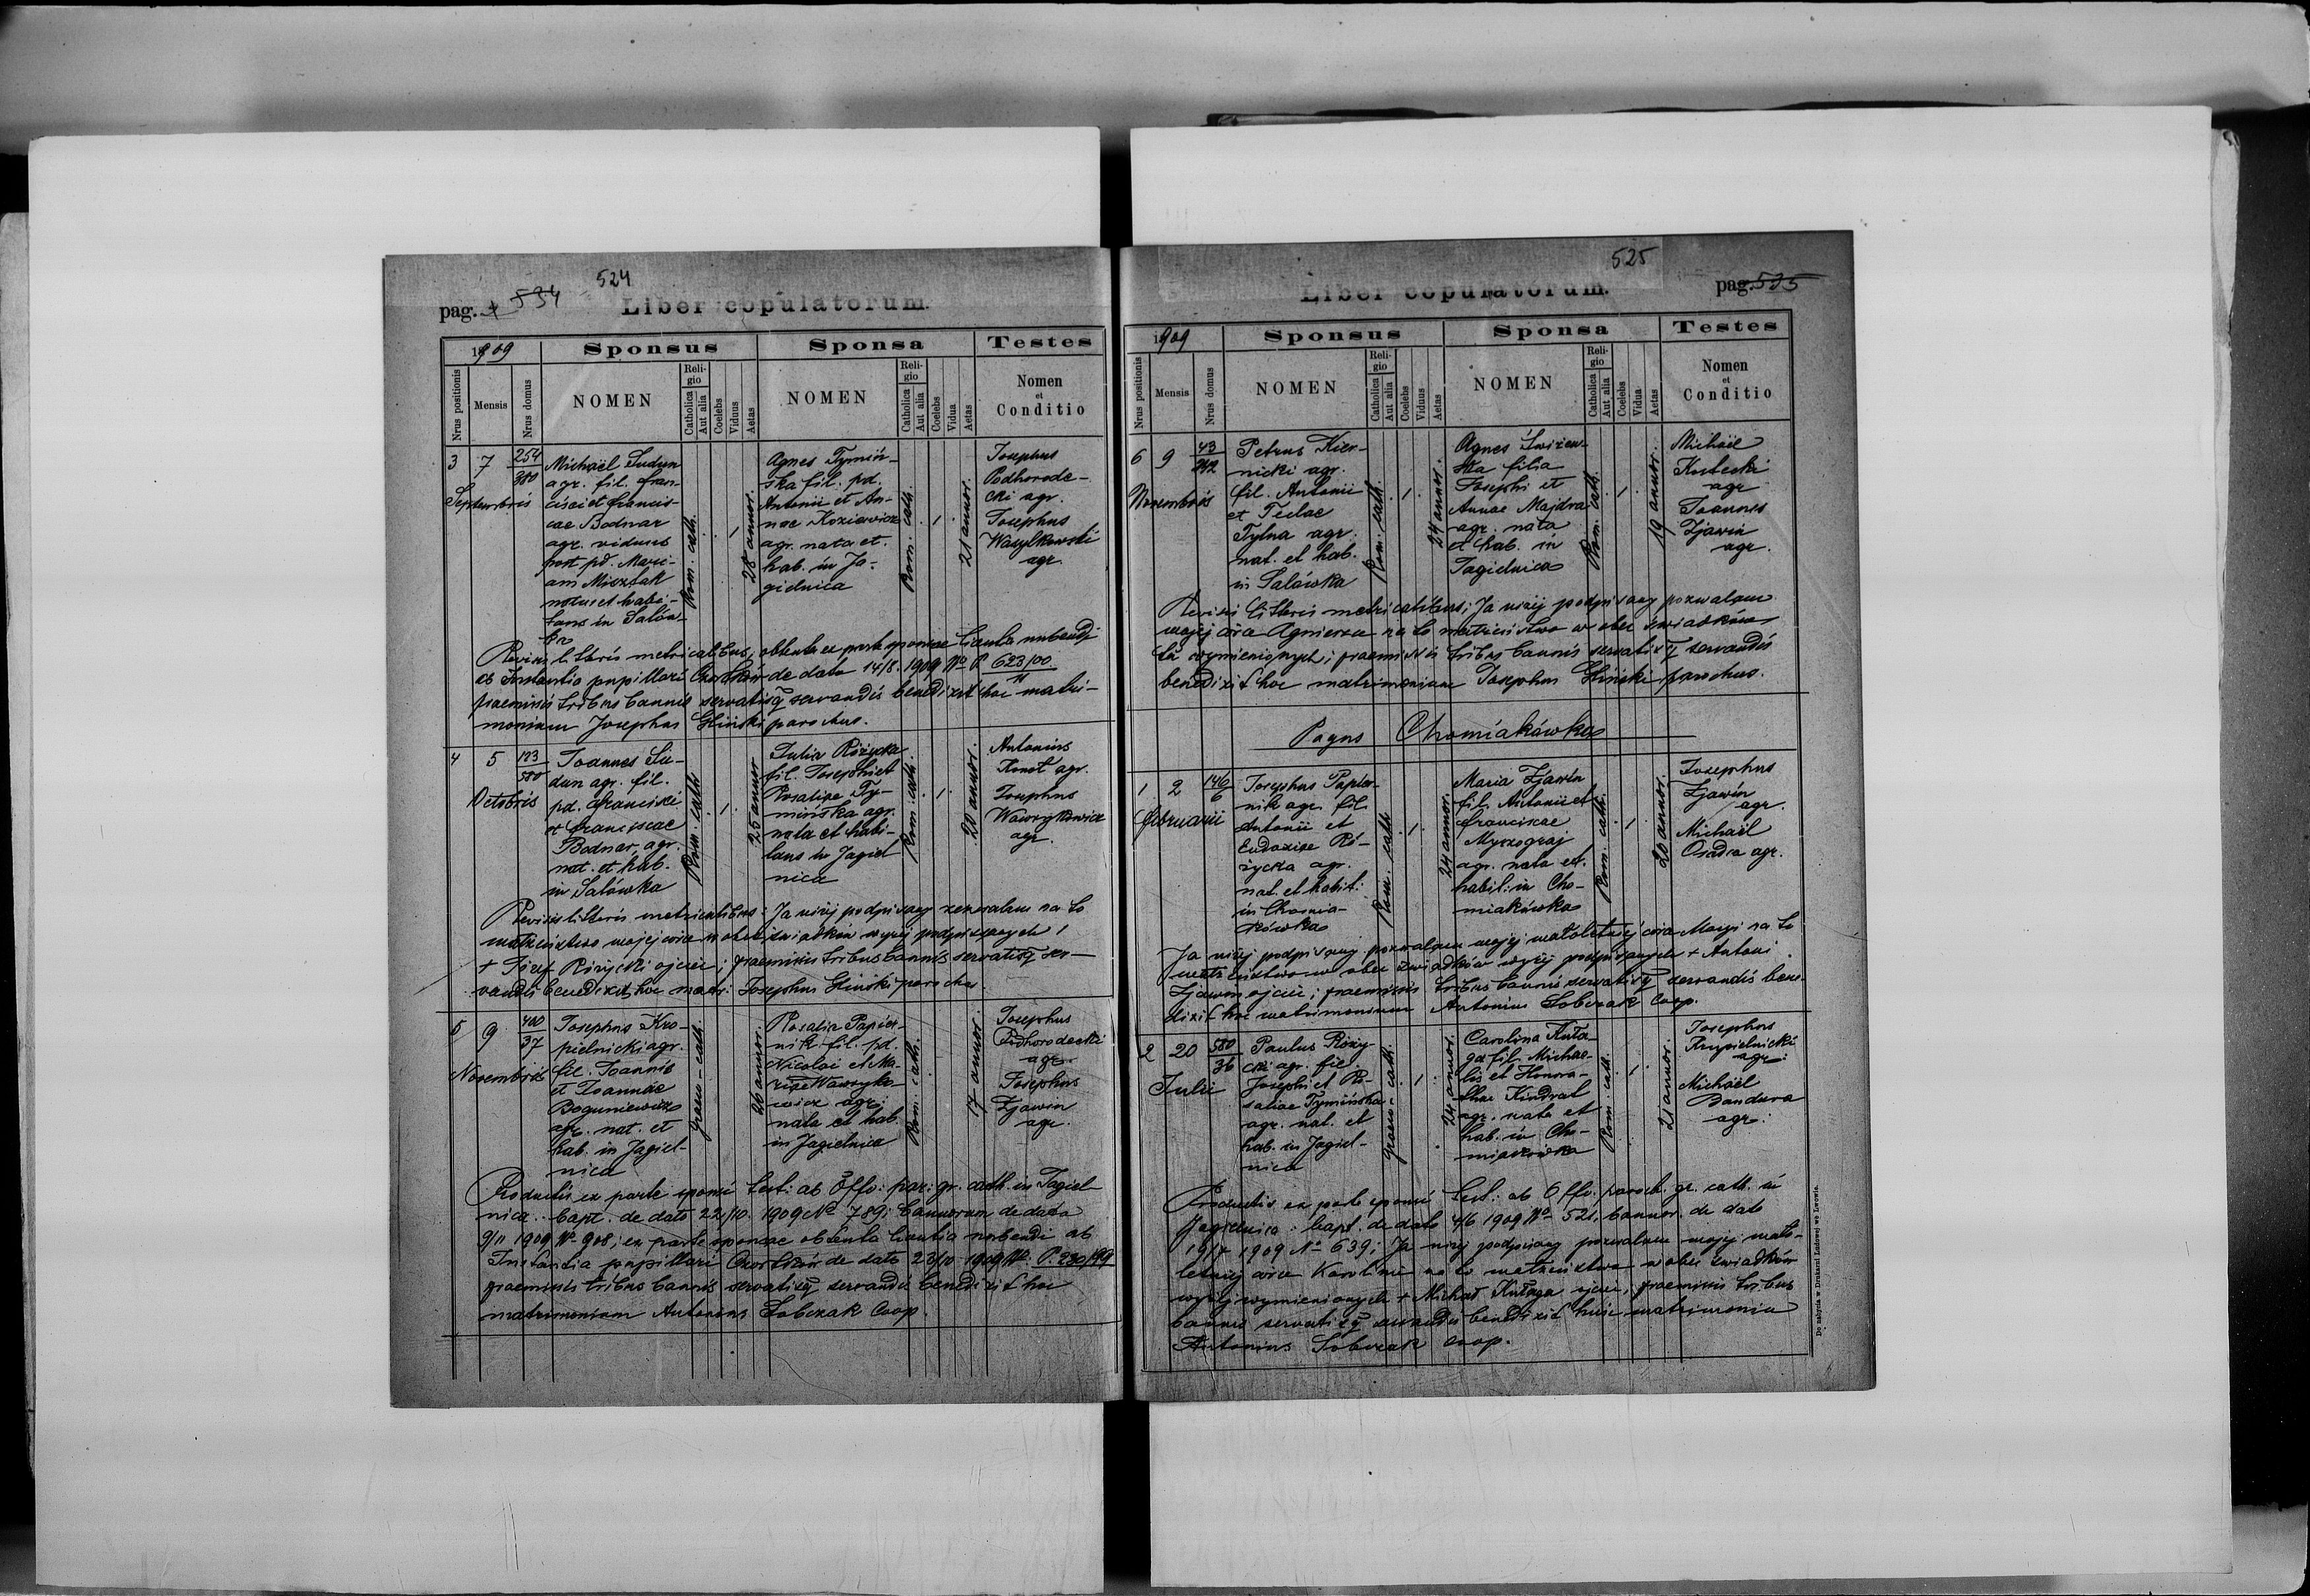 524
pag. 534
Liber copulatorum.
1909
Sponsus
Sponsa
Testes
Nrus positionis
Mensis
Nrus domus
NOMEN
Religio
Catholica
Aut alia
Coelebs
Viduus
Aetas
NOMEN
Religio
Catholica
Aut alia
Coelebs
Vidua
Aetas
Nomen
et
Conditio
3
7
Septembris
254
380
Michaël Sudun
agr. fil. Fran-
cisci et Francis-
cae Bodnar
agr. viduus
post pd. Mari-
am
natus et habi-
tans in Salów-
ka
Rom. cath.
1
28 annor.
Agnes Tymiń-
ska fil. pd.
Antonii et An-
nae Koziewicz
agr. nata et
hab. in Ja-
gielnica
Rom. cath.
1
21 annor.
Josephus
Podhorode-
cki agr.
Josephus
Wasylkowski
agr.
Revisis litteris metricalibus, obtenta ex parte sponsae licentia nubendi
ab Instantia pupillari Czortków de dato 14/8. 1909 No P. 623/00
praemissis tribus bannis servatisq servandis benedixit hoc matri-
monium Josephus Gliński parochus.
4
5
Octobris
123
580
Joannes Su-
dun agr. fil.
pd. Francisci
et Franciscae
Bodnar, agr.
nat. et hab.
in Salówka
Rom. cath.
1
25 annor
Julia Różycka
fil. Josephi et
Rosaliae Ty-
mińska agr.
nata et habi-
tans in Jagiel
nica
Rom. cath.
1
20 annor.
Antonius
Kmet agr.
Josephus
Wawrykowicz
agr.
Revisis litteris metricalibus: Ja niżej podpisany zezwalam na to
małżeństwo mojej wobec świadków wyżej podpisanych
+ Józef Różycki ojciec; praemissis tribus bannis servatisq ser-
vandis benedixit hoc matr: Josephus Gliński parochus.
5
9
Novembris
400
37
Josephus Kro-
pielnicki agr.
fil. Joannis
et Joannae
Boguniewicz
agr. nat. et
hab. in Jagiel-
nica
graeco-cath.
1
26 annor.
Rosalia Papier-
nik fil. pd.
Nicolai et Ma-
riae Wawryko-
wicz agr.
nata et hab.
in Jagielnica
Rom. cath.
1
17 annor.
Josephus
Podhorodecki
agr.
Josephus
Zjawin
agr.
Productis ex parte sponsi test: ab Offo: par: gr. cath. in Jagiel
nica: bapt. de dato 22/10. 1909 No 789; bannorum de dato
9/11 1909 No 908; ex parte sponsae obtenta licentia nubendi ab
Instantia pupillari Czortków de dato 23/10 1909 No. P. 230/99
praemissis tribus bannis servatisq servandis benedixit hoc
matrimonium Antonius Sobczak Coop.
525
Liber copulatorum.
pag. 535
1909
Sponsus
Sponsa
Testes
Nrus positionis
Mensis
Nrus domus
NOMEN
Religio
Catholica
Aut alia
Coelebs
Viduus
Aetas
NOMEN
Religio
Catholica
Aut alia
Coelebs
Vidua
Aetas
Nomen
et
Conditio
6
9
Novembris
43
Petrus Kier-
nicki agr.
fil. Antonii
et Teclae
Tylna agr.
nat. et hab.
in Salówka
Rom. cath.
1
24 annor.
Agnes
ska filia
Josephi et
Annae Majdra
agr. nata
et hab. in
Jagielnica
Rom. cath.
1
19 annor.
Michaël
Kutecki
agr
Joannes
Zjawin
agr.
Revisis litteris metricalibus; Ja niżej podpisany pozwalam
mojej córce Agnieszce na to małżeństwo w obec świadków
tu wymienionych; praemissis tribus bannis servatisq servandis
benedixit hoc matrimonium Josephus Gliński parochus.
Pagus Chomiakówka
1
2
Februarii
146
6
Josephus Papier-
nik agr. fil.
Antonii et
Eudoxiae Ró-
życka agr.
nat. et habit:
in Chomia-
kówka
Rom. cath
1
24 annor.
Maria Zjawin
fil. Antonii et
Franciscae
Myrzograj
agr. nata et
habit: in Cho-
miakówka
Rom. cath.
1
20 annor.
Josephus
Zjawin
agr.
Michaël
Osadca agr.
Ja niżej podpisany pozwalam mojej małoletniej córce Maryi na to
małżeństwo w obec świadków wyżej podpisanych + Antoni
Zjawin ojciec; praemissis tribus bannis servatisq servandis bene-
dixit hoc matrimonium Antonius Sobczak Coop.
2
20
Julii
580
36
Paulus Róży
cki agr. fil.
Josephi et Ro-
saliae Tymińska
agr. nat. et
hab. in Jagiel-
nica
graeco-cath.
1
24 annor.
Carolina Kuła-
ga fil. Michae-
lis et Honora-
thae Kindrat
agr. nata et
hab. in Cho-
miakówka
Rom. cath.
1
21 annor.
Josephus
Krupielnicki
agr.
Michaël
Bandura
agr.
Productis ex parte sponsi test: ab Offo. paroch. gr. cath. in
Jagielnica: bapt. de dato 4/6 1909 No 521, bannor. de dato
19/7 1909 No 639; Ja niżej podpisany pozwalam mojej mało-
letniej córce Karolinie na to małżeństwo w obec świadków
wyżej wymienionych + Michał Kułaga ojciec, praemissis tribus
bannis servatisq servandis benedixit huic matrimonio
Antonius Sobczak Coop.
Do nabycia w Drukarni Ludowej we Lwowie.